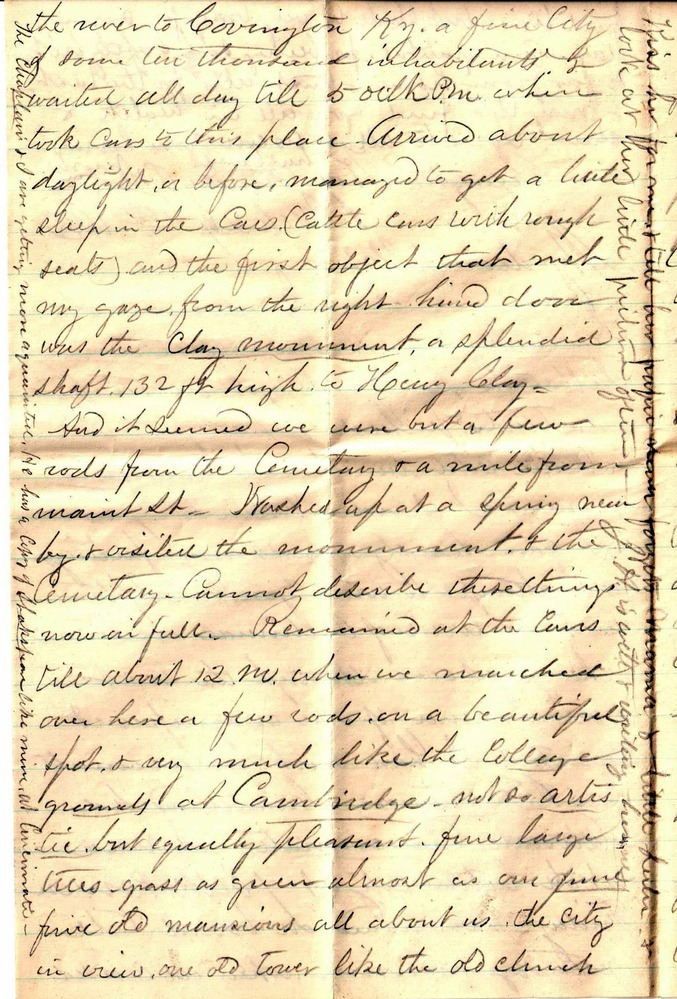 the river to Covington Ky. a fine City
of some ten thousand inhabitants &
waited all day till 5 oclk P.M. when
took cars to this place. Arrived about
daylight, or before, managed to get a little
sleep in the Cars. (Cattle cars with rough
seats) and the first object that met
my gaze, from the right hand door
was the Clay monument, a splendid
shaft. 132 ft high. to Henry Clay-
And it seemed we were but a few
rods from the Cemetary & a mile from
maint St- Washed up at a spring near
by. & visited the monument. & the
Cemetary- Cannot describe these things
now in full. Remained at the Cars
till about 12. M. when we marched
over here a few rods. on a beautiful
spot. & very much like the College
grounds at Cambridge- not so artis
tic. but equally pleasant. fine large
trees. grass as green almost as our June
fine old mansions all about us. the City
in view. one old tower like the old church
The Chaplain & I are getting more aquainted. He has a Copy of Shakspeare like mine. at Cincinnati-
Mama & little
look at her little picture often-
He is well &